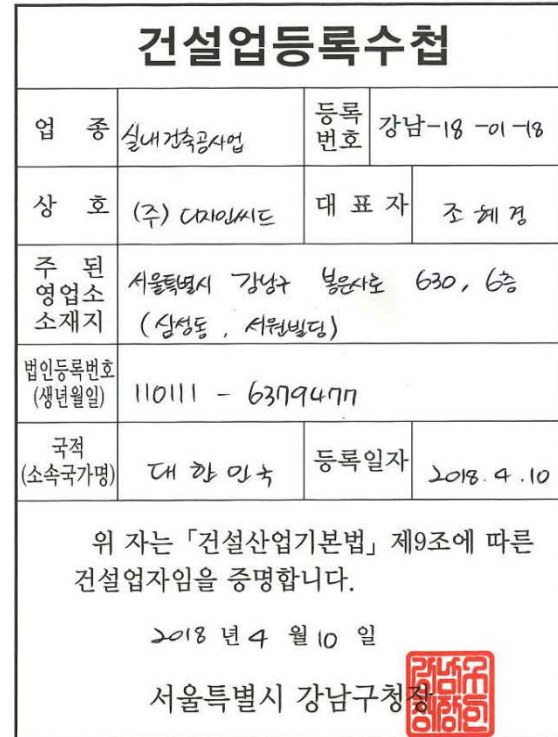 건설업등록수첩
업 종 실내건축공사업 등록번호 강남-18-01-18
상 호 (주) 디자인씨드 대표자 조혜경
주 된 영업소 소재지 서울특별시 강남구 봉은사로 630, 6층
(삼성동, 서원빌딩)
법인등록번호
(생년월일) 110111 - 6379477
국적
(소속국가명) 대한민국 등록일자 2018.4.10
위 자는 「건설산업기본법」 제9조에 따른
건설업자임을 증명합니다.
2018 년 4 월 10 일
서울특별시 강남구청장